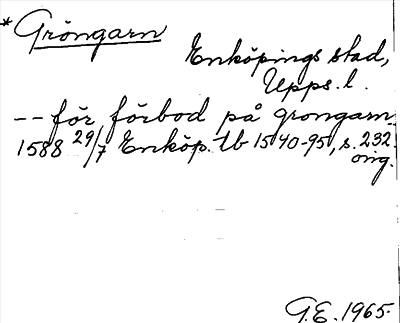 * Gröngarn
Enköpings stad,
Upps. l.
-- för förbod på grongarn
1588 29/7 Enköp. tb 1540-95, s. 232.
orig.
G.E. 1965.